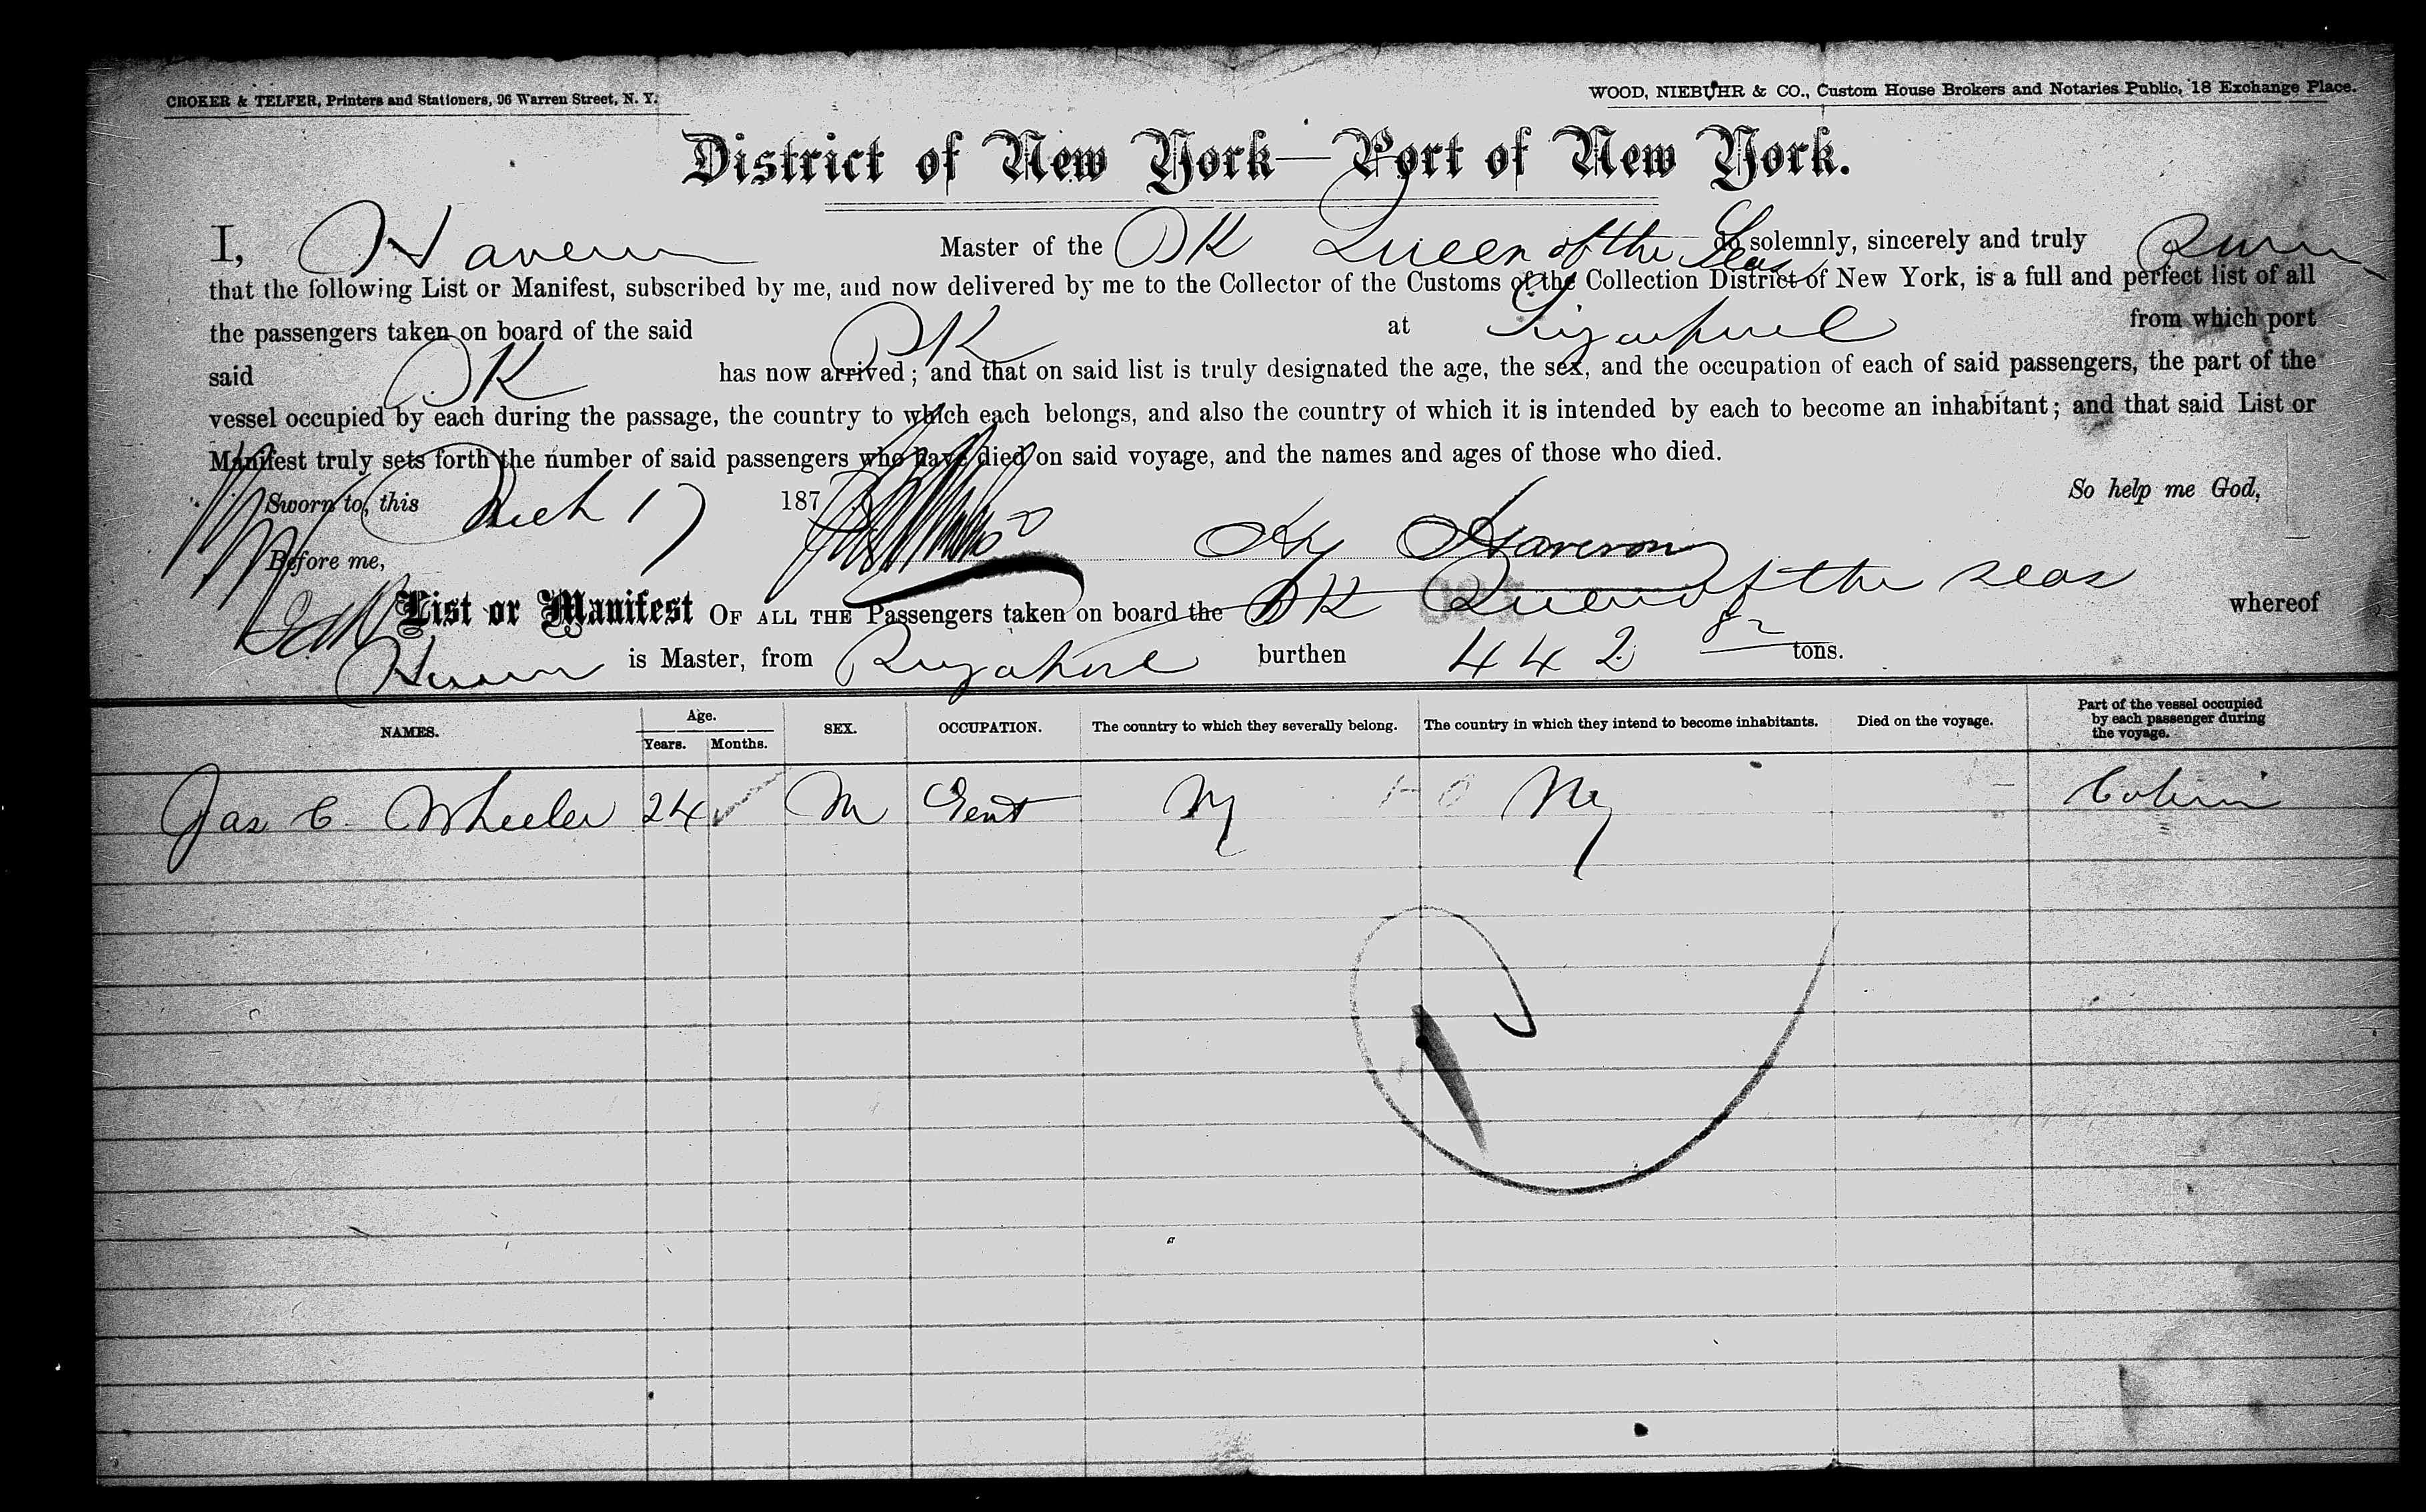 CROKER & TELFER, Printers and Stationers, 96 Warren Street, N. Y.
WOOD, NIEBUHR & CO., Custom House Brokers and Notaries Public, 18 Exchange Place.
District of New York—Port of New York.
I, Master of the BK Queen of the Seas do solemnly, sincerely and truly
that the following List or Manifest, subscribed by me, and now delivered by me to the Collector of the Customs of the Collection District of New York, is a full and perfect list of all
the passengers taken on board of the said BK at from which port
said BK has now arrived; and that on said list is truly designated the age, the sex, and the occupation of each of said passengers, the part of the
vessel occupied by each during the passage, the country to which each belongs, and also the country of which it is intended by each to become an inhabitant; and that said List or
Manifest truly sets forth the number of said passengers who have died on said voyage, and the names and ages of those who died.
Sworn to, this Mch 17 187 So help me God,
Before me,
List or Manifest OF ALL THE Passengers taken on board the BK Queen of the Seas whereof
is Master, from burthen 442 82 tons.
NAMES. Age. Years. Months. SEX. OCCUPATION. The country to which they severally belong. The country in which they intend to become inhabitants. Died on the voyage. Part of the vessel occupied by each passenger during the voyage.
Jas C. Wheeler 24 M Gent NY NY Cabin